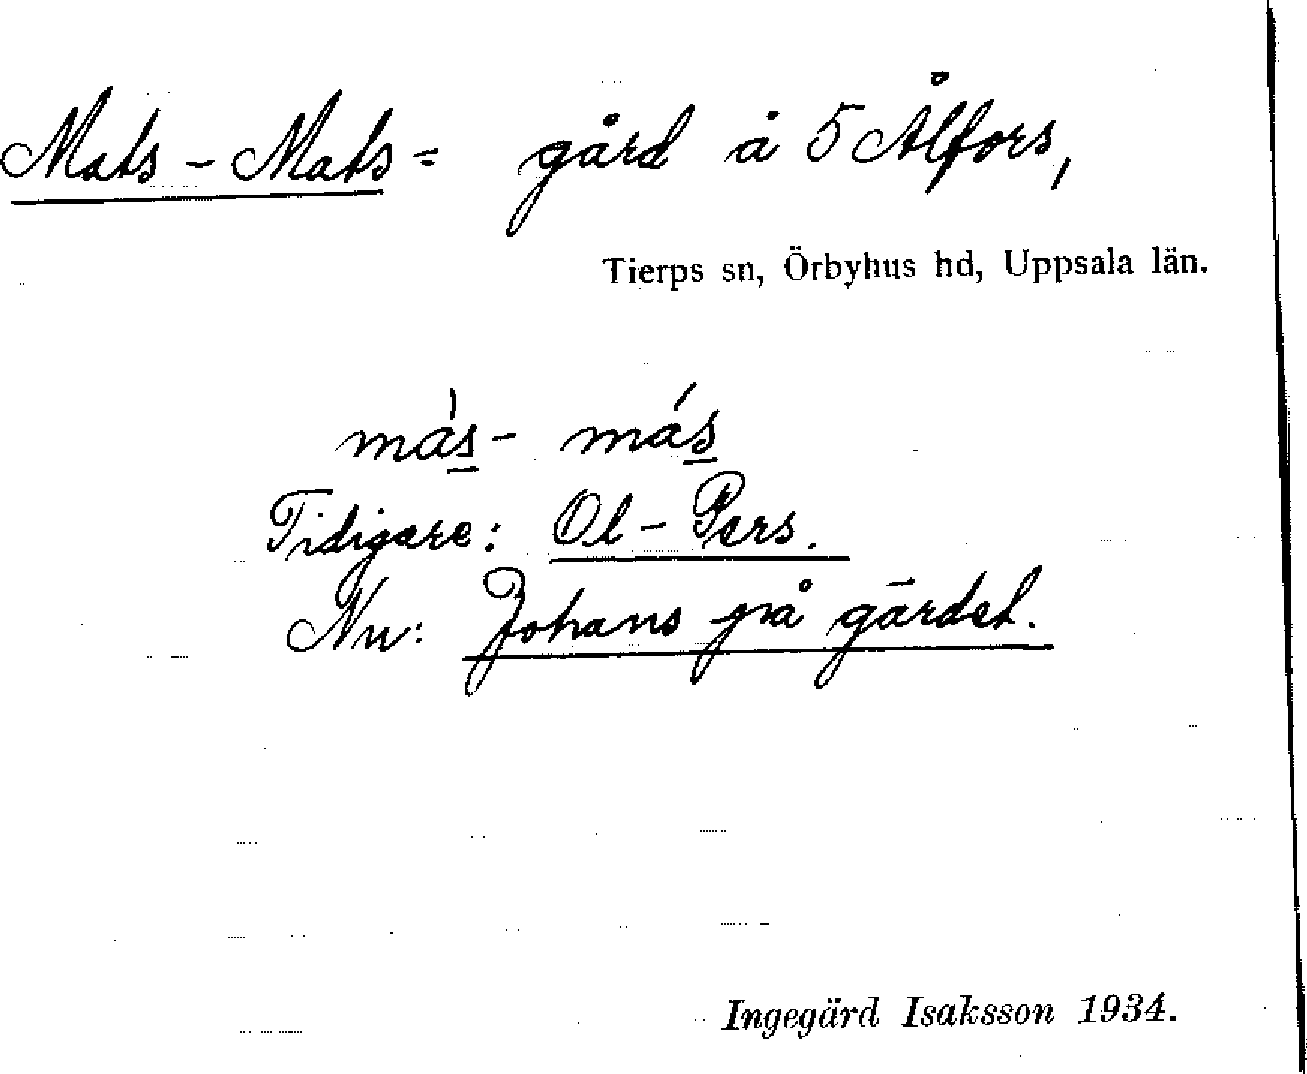 Mats - Mats = gård å 5 Ålfors,
Tierps sn, Örbyhus hd, Uppsala län.
más - más
Tidigare: Ol - Pers.
Nu: Johans på gärdet.
Ingegärd Isaksson 1934.